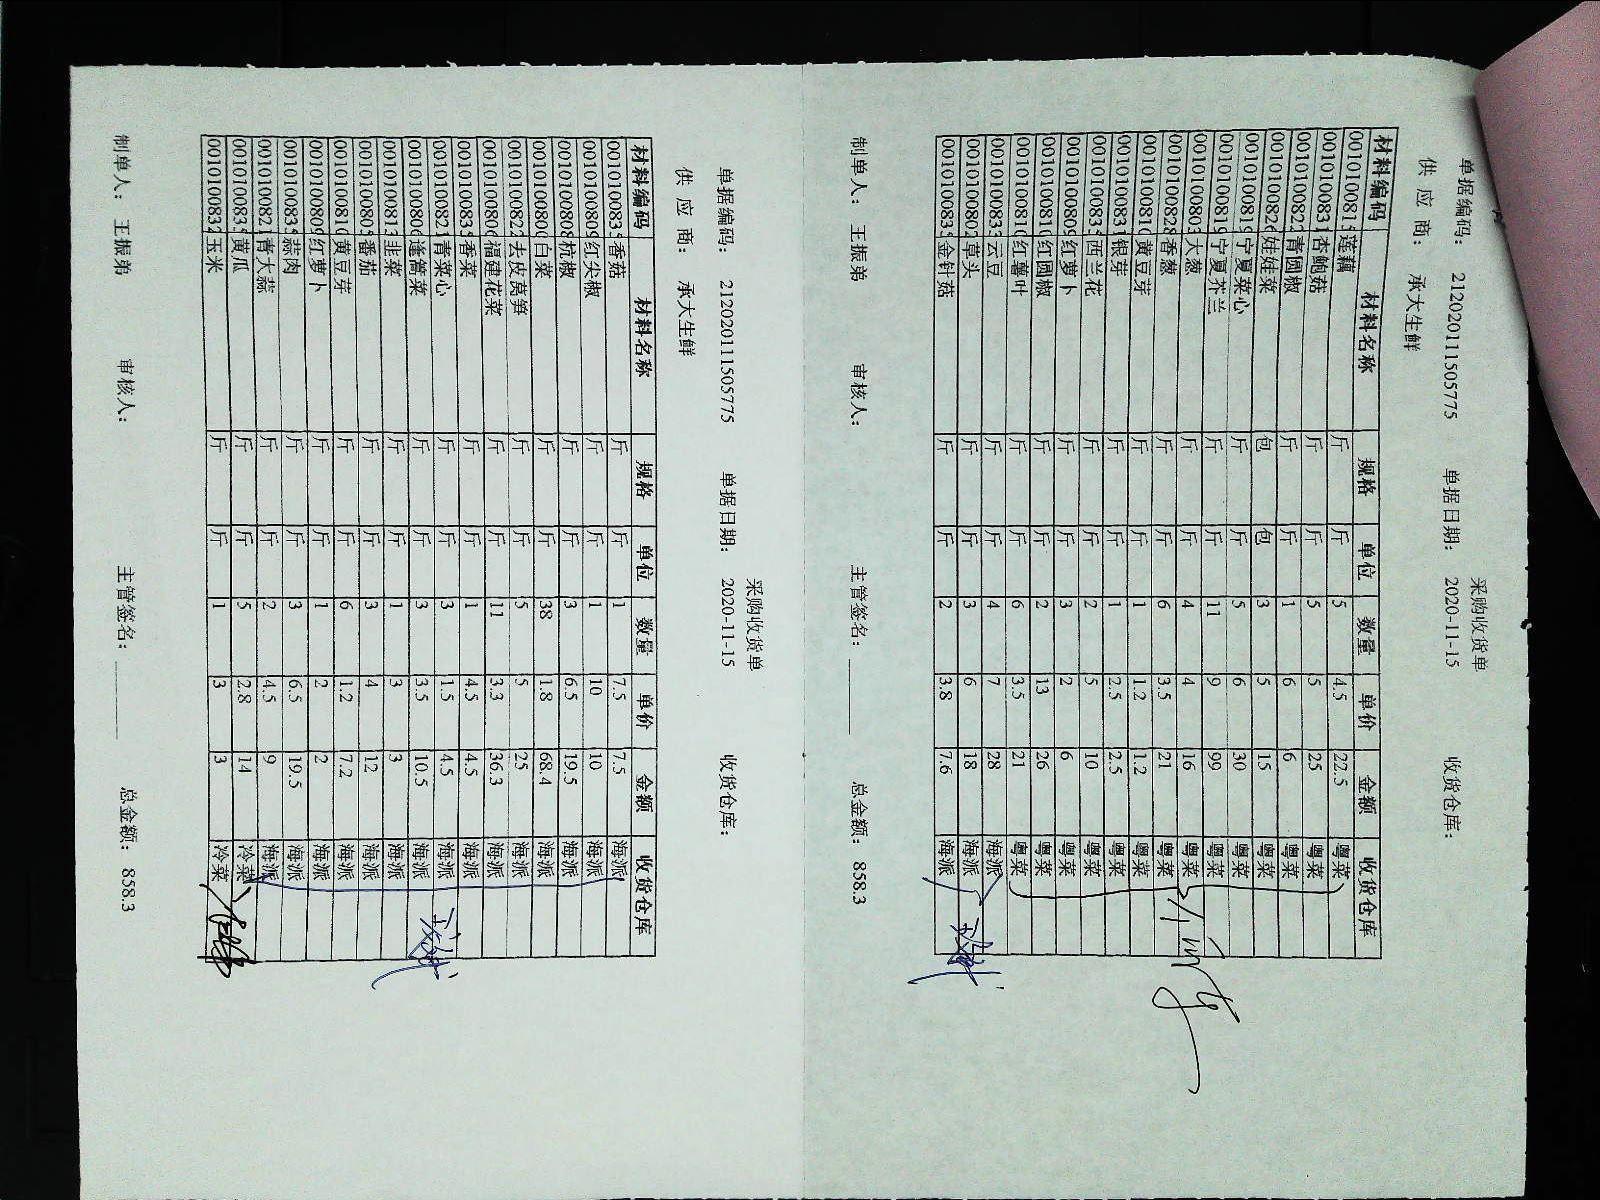 采购收货单
单据编码： 212020111505775 单据日期： 2020-11-15 收货仓库：
供 应 商： 承大生鲜
材料编码 材料名称 规格 单位 数量 单价 金额 收货仓库
001010081 莲藕 斤 斤 5 4.5 22.5 粤菜
0010100831 杏鲍菇 斤 斤 5 5 25 粤菜
001010082 青圆椒 斤 斤 1 6 6 粤菜
001010082 娃娃菜 包 包 3 5 15 粤菜
001010081 宁夏菜心 斤 斤 5 6 30 粤菜
001010081 宁夏芥兰 斤 斤 11 9 99 粤菜
001010080 大葱 斤 斤 4 4 16 粤菜
001010082 香葱 斤 斤 6 3.5 21 粤菜
001010081 黄豆芽 斤 斤 1 1.2 1.2 粤菜
001010083 银芽 斤 斤 1 2.5 2.5 粤菜
001010083 西兰花 斤 斤 2 5 10 粤菜
001010080 红萝卜 斤 斤 3 2 6 粤菜
001010081 红圆椒 斤 斤 2 13 26 粤菜
001010081 红薯叶 斤 斤 6 3.5 21 粤菜
001010083 云豆 斤 斤 4 7 28 海派
001010080 草头 斤 斤 3 6 18 海派
001010083 金针菇 斤 斤 2 3.8 7.6 海派
制单人： 王振弟 审核人： 主管签名： 总金额： 858.3
采购收货单
单据编码： 212020111505775 单据日期： 2020-11-15 收货仓库：
供 应 商： 承大生鲜
材料编码 材料名称 规格 单位 数量 单价 金额 收货仓库
001010083 香菇 斤 斤 1 7.5 7.5 海派
001010080 红尖椒 斤 斤 1 10 10 海派
001010080 杭椒 斤 斤 3 6.5 19.5 海派
001010080 白菜 斤 斤 38 1.8 68.4 海派
001010082 去皮莴笋 斤 斤 5 5 25 海派
001010080 福建花菜 斤 斤 11 3.3 36.3 海派
001010083 香菜 斤 斤 1 4.5 4.5 海派
001010082 青菜心 斤 斤 3 1.5 4.5 海派
001010080 蓬蒿菜 斤 斤 3 3.5 10.5 海派
001010081 韭菜 斤 斤 1 3 3 海派
001010080 番茄 斤 斤 3 4 12 海派
001010081 黄豆芽 斤 斤 6 1.2 7.2 海派
001010080 红萝卜 斤 斤 1 2 2 海派
001010083 蒜肉 斤 斤 3 6.5 19.5 海派
001010082 青大蒜 斤 斤 2 4.5 9 海派
001010083 黄瓜 斤 斤 5 2.8 14 冷菜
001010083 玉米 斤 斤 1 3 3 冷菜
制单人： 王振弟 审核人： 主管签名： 总金额： 858.3